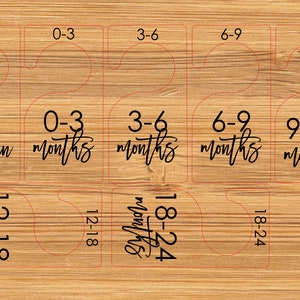 0-3
3-6
6-9
0-3
months
3-6
months
6-9
months
12-18
18-24
months
18-24